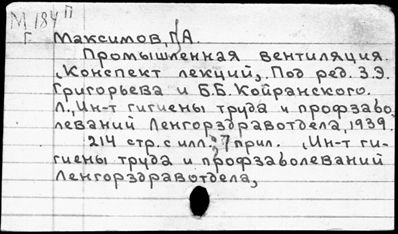 М 184 П
Г Максимов, Г.А.
Промышленная вентиляция.
„Конспект лекций„ Под ред. З.Э.
Григорьева и Б.Б. Койранского.
Л., Ин-т гигиены труда и профзабо-
леваний Ленгорздравотдела, 1939.
214 стр. с илл.; 7 прил. „Ин-т ги-
гиены труда и профзаволеваний
Ленгорздравотдела„